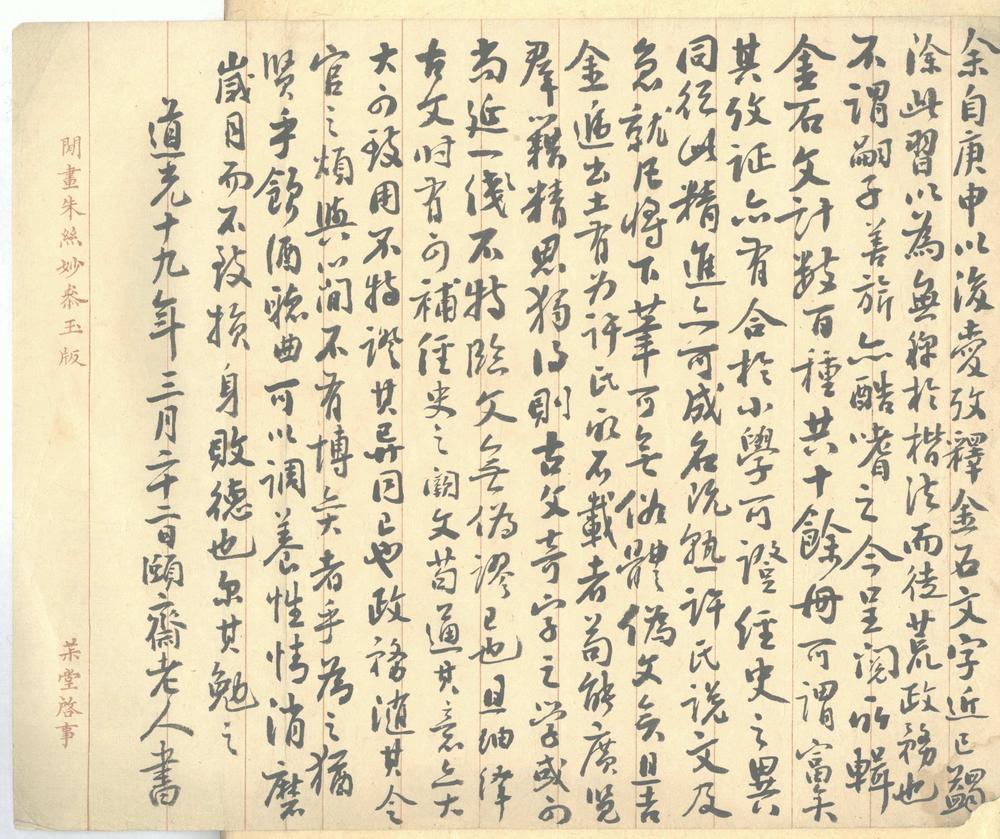 余自庚申以後愛攷釋金石文字近已蠲
除此習以為無裨於楷法而徒荒政務也
不謂嗣子善旂亦酷嗜之今呈閱所輯
金石文計數百種共十餘冊可謂富矣
其攷証亦有合於小學可證經史之異
同從此精進亦可成名既熟許氏說文及
急就尼將下筆可無俗體偽文矣且吉
金遞出土有为許氏所不載者苟能廣覽
羣籍精思独得則古文奇字之学或可
尚延一綫不特臨文無偽謬已也且紬繹
古文时有可補經史之闕文苟通其意亦大
大可致用不特證其异同已也政務隨其令
官之煩與簡不有博奕者乎為之猶
賢乎飲酒聽曲可以調養性情消磨
歲月而不致損身敗德也尔其勉之
道光十九年三月二十二日頤齋老人書
閑畫朱絲妙叅玉版
茮堂啓事